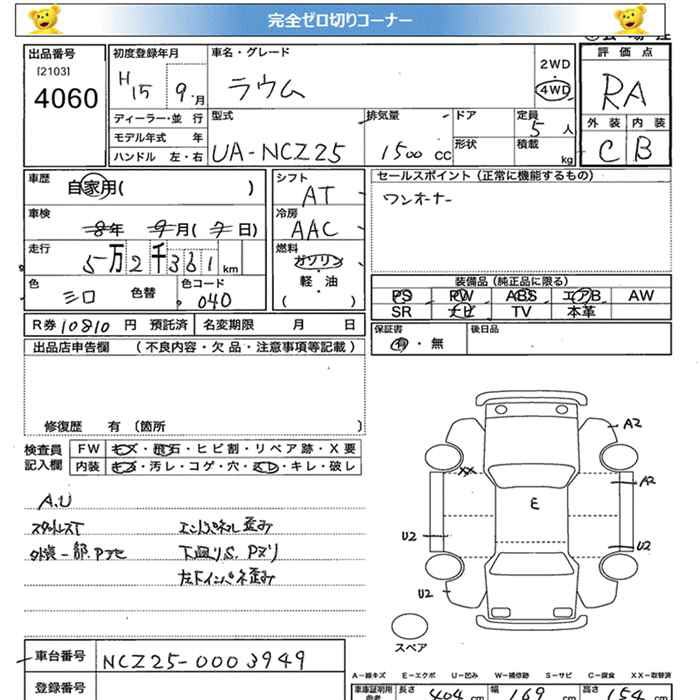 完全ゼロ切りコーナー
出品番号
[2103]
4060
初度登録年月
H15 9月
車名・グレード
ラウム
2WD
・
4WD
評価点
RA
外装 内装
C B
ディーラー・並行
モデル年式 年
ハンドル 左・右
型式
UA-NCZ25
排気量
1500cc
ドア
形状
定員
5人
積載
kg
車歴
自家用( )
車検
8年 9月(7日)
走行
5万2千361km
色
シロ 色替
色コード
040
シフト
AT
冷房
AAC
燃料
ガソリン
・
軽・油
( )
セールスポイント(正常に機能するもの)
ワンオーナー
装備品(純正品に限る)
PS PW ABS エアB AW
SR ナビ TV 本革
R券 10810 円 預託済
名変期限 月 日
保証書
有・無
後日品
出品店申告欄 (不良内容・欠品・注意事項等記載)
修復歴 有 〔箇所 〕
検査員
記入欄
FW キズ・飛石・ヒビ割・リペア跡・X要
内装 キズ・汚レ・コゲ・穴・ミレ・キレ・破レ
A.U
スタットレスT エンドパネル歪み
外装一部.Pアセ 下回りS.Pヌリ
左ドインパネ歪み
A2
XX
A2
E
U2
U2
U2
スペア
車台番号
NCZ25-0003949
登録番号
A-線キズ E-エクボ U-凹み W-補修跡 S-サビ C-腐食 XX-取替済
車庫証明用
参考
長さ 404 cm 幅 169 cm 高さ 154 cm